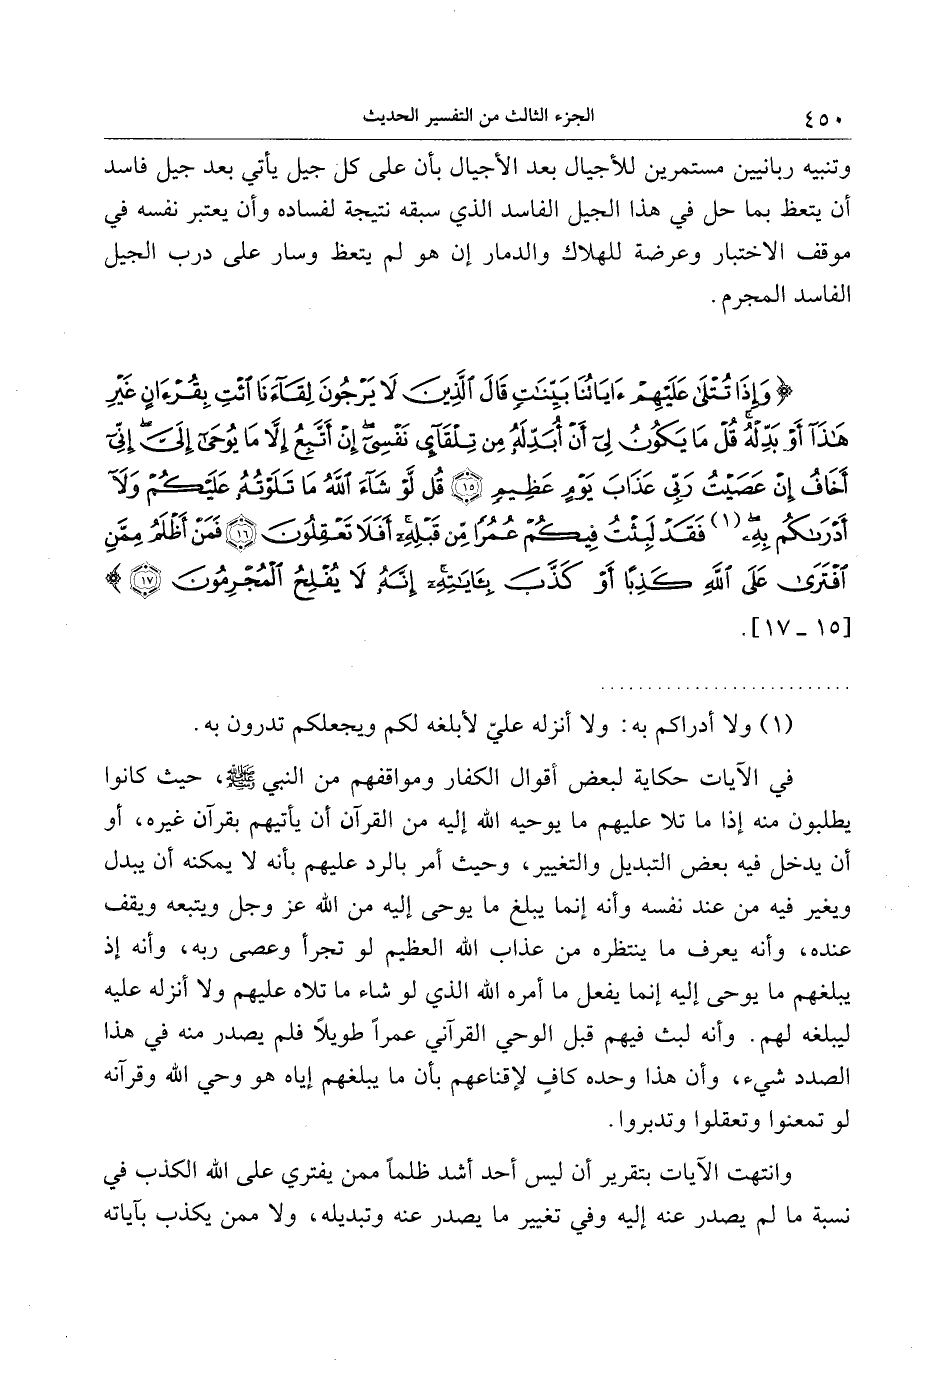 ٤٥٠ الجزء الثالث من التفسير الحديث
وتنبيه ربانيين مستمرين للأجيال بعد الأجيال بأن على كل جيل يأتي بعد جيل فاسد
أن يتعظ بما حل في هذا الجيل الفاسد الذي سبقه نتيجة لفساده وأن يعتبر نفسه في
موقف الاختبار وعرضة للهلاك والدمار إن هو لم يتعظ وسار على درب الجيل
الفاسد المجرم.
﴿ وَإِذَا تُتْلَىٰ عَلَيْهِمْ ءَايَاتُنَا بَيِّنَٰتٍ قَالَ ٱلَّذِينَ لَا يَرْجُونَ لِقَآءَنَا ٱئْتِ بِقُرْءَانٍ غَيْرِ
هَٰذَآ أَوْ بَدِّلْهُ قُلْ مَا يَكُونُ لِىٓ أَنْ أُبَدِّلَهُۥ مِن تِلْقَآئِ نَفْسِىٓ إِنْ أَتَّبِعُ إِلَّا مَا يُوحَىٰٓ إِلَىَّ إِنِّىٓ
أَخَافُ إِنْ عَصَيْتُ رَبِّى عَذَابَ يَوْمٍ عَظِيمٍ ﴿١٥﴾ قُل لَّوْ شَآءَ ٱللَّهُ مَا تَلَوْتُهُۥ عَلَيْكُمْ وَلَآ
أَدْرَىٰكُم بِهِۦ (١) فَقَدْ لَبِثْتُ فِيكُمْ عُمُرًا مِّن قَبْلِهِۦٓ أَفَلَا تَعْقِلُونَ ﴿١٦﴾ فَمَنْ أَظْلَمُ مِمَّنِ
ٱفْتَرَىٰ عَلَى ٱللَّهِ كَذِبًا أَوْ كَذَّبَ بِـَٔايَٰتِهِۦٓ إِنَّهُۥ لَا يُفْلِحُ ٱلْمُجْرِمُونَ ﴿١٧﴾ ﴾
[١٥ ـ ١٧].
(١) ولا أدراكم به: ولا أنزله عليّ لأبلغه لكم ويجعلكم تدرون به.
في الآيات حكاية لبعض أقوال الكفار ومواقفهم من النبي ﷺ، حيث كانوا
يطلبون منه إذا ما تلا عليهم ما يوحيه الله إليه من القرآن أن يأتيهم بقرآن غيره، أو
أن يدخل فيه بعض التبديل والتغيير، وحيث أمر بالرد عليهم بأنه لا يمكنه أن يبدل
ويغير فيه من عند نفسه وأنه إنما يبلغ ما يوحى إليه من الله عز وجل ويتبعه ويقف
عنده، وأنه يعرف ما ينتظره من عذاب الله العظيم لو تجرأ وعصى ربه، وأنه إذ
يبلغهم ما يوحى إليه إنما يفعل ما أمره الله الذي لو شاء ما تلاه عليهم ولا أنزله عليه
ليبلغه لهم. وأنه لبث فيهم قبل الوحي القرآني عمراً طويلاً فلم يصدر منه في هذا
الصدد شيء، وأن هذا وحده كافٍ لإقناعهم بأن ما يبلغهم إياه هو وحي الله وقرآنه
لو تمعنوا وتعقلوا وتدبروا.
وانتهت الآيات بتقرير أن ليس أحد أشد ظلماً ممن يفتري على الله الكذب في
نسبة ما لم يصدر عنه إليه وفي تغيير ما يصدر عنه وتبديله، ولا ممن يكذب بآياته